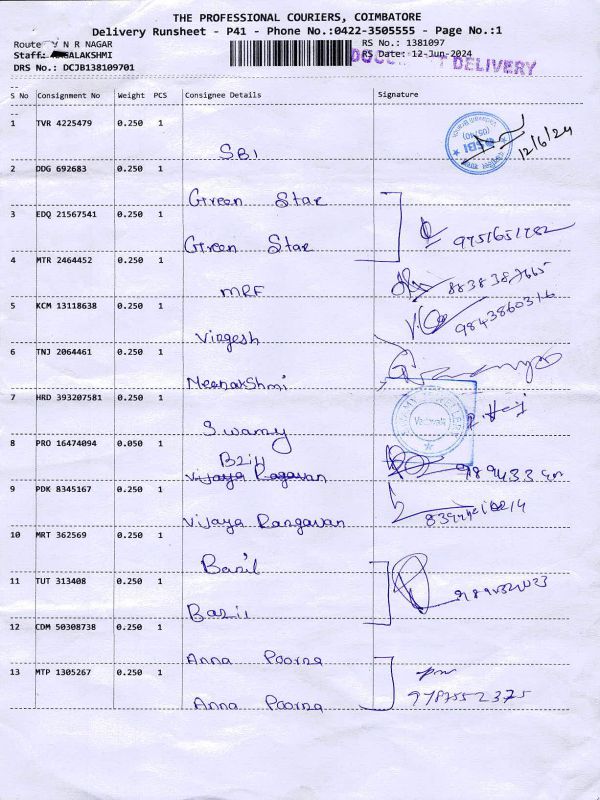 THE PROFESSIONAL COURIERS, COIMBATORE
Delivery Runsheet - P41 - Phone No.:0422-3505555 - Page No.:1
Route N R NAGAR
RS No.: 1381097
Staff: SALAKSHMI
RS Date: 12-Jun-2024
DRS No.: DCJB138109701
DELIVERY
S No Consignment No Weight PCS Consignee Details Signature
1 TVR 4225479 0.250 1
SBI 12/6/24
2 DDG 692683 0.250 1
Green Star
3 EDQ 21567541 0.250 1
Green Star 9751651282
4 MTR 2464452 0.250 1
MRF
5 KCM 13118638 0.250 1 9843860316
Virgesh
6 TNJ 2064461 0.250 1
Meenakshmi
7 HRD 393207581 0.250 1
Swamy
8 PRO 16474094 0.050 1
Bzill
Vijaya Ragavan
9 PDK 8345167 0.250 1
Vijaya Rangavan
10 MRT 362569 0.250 1
Bazil
11 TUT 313408 0.250 1
Bazil
12 CDM 50308738 0.250 1
Anna Poorna
13 MTP 1305267 0.250 1
Anna Poorna 9787552375